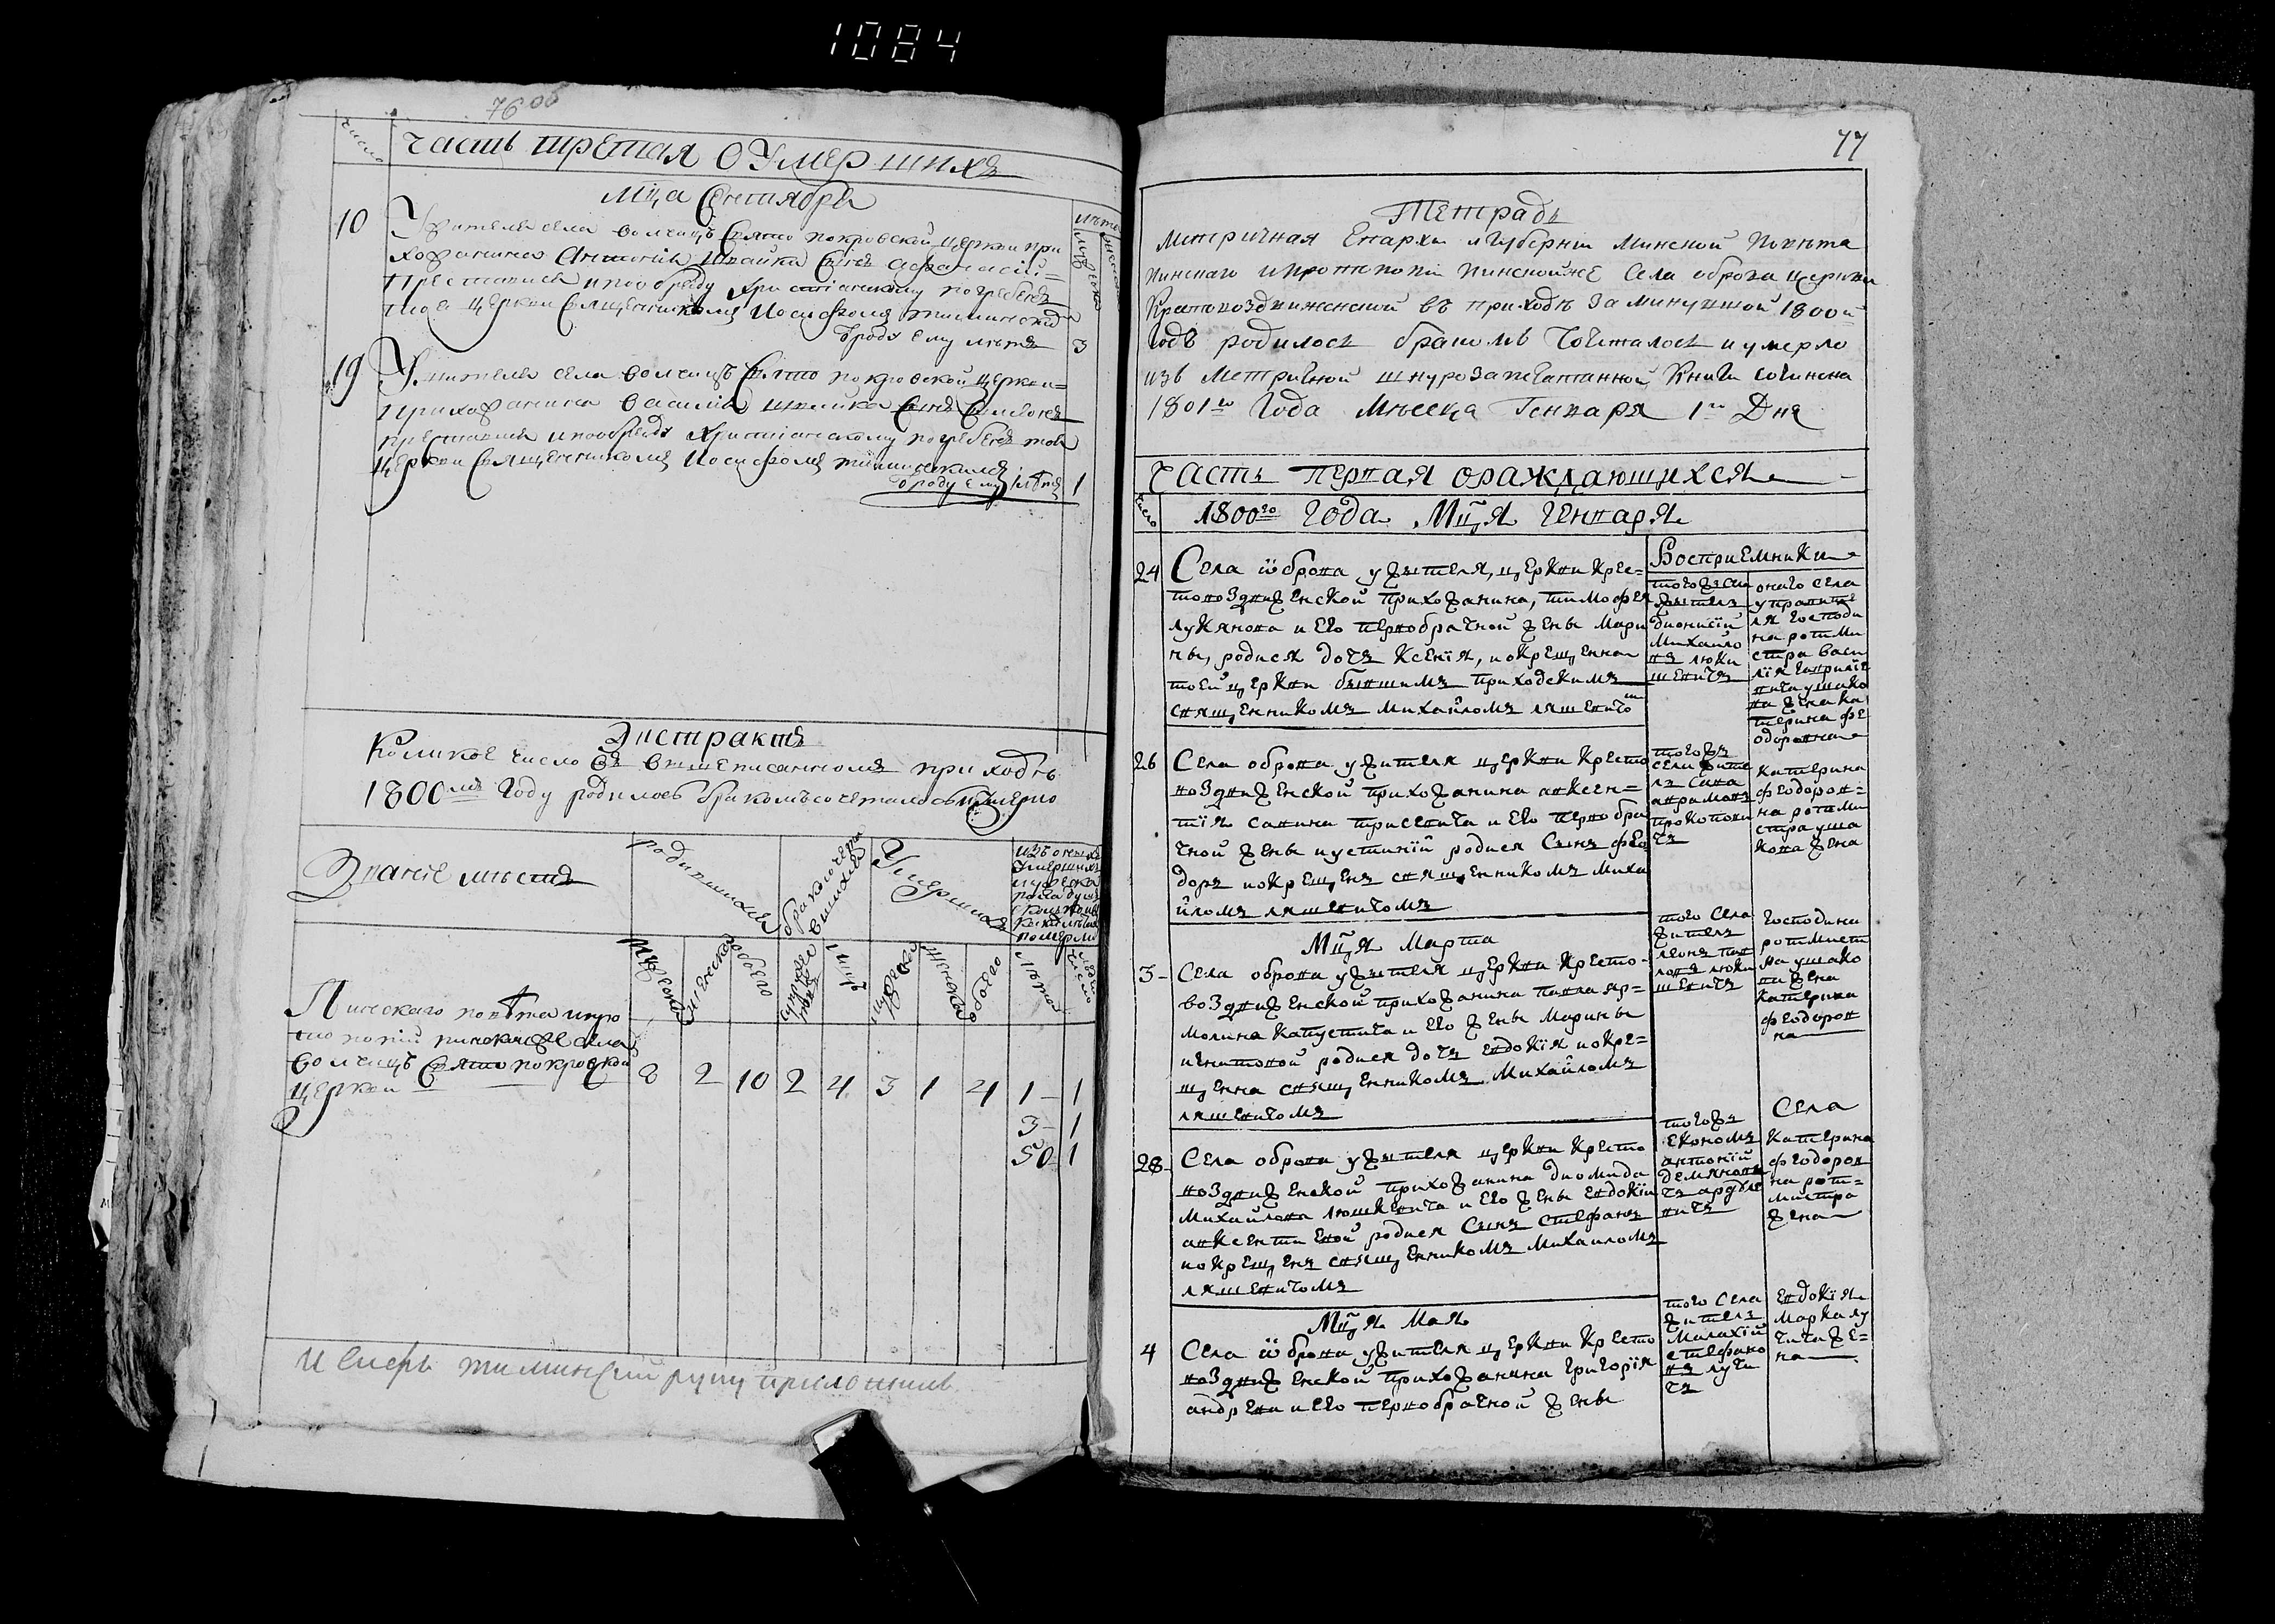 1084
76 об
число
Часть третая О Умершихъ
Мца Сентября
10
Ужителя села волчицъ Свято покровской церкви при
хожанина Антонія Швайки Сынъ афанасій
Преставися и по обряду христіанскому погребенъ
тоя церкви Священникомъ Иосифомъ тиминскимъ
ѿроду ему лѣтъ 3
19
Ужителя села волчицъ Свято покровской церкви
прихожанина василія швайки Сынъ Симеонъ
преставися и по обряду христіанскому погребенъ тоя
церкви Священникомъ Иосифомъ тиминскимъ
ѿроду ему лѣтъ 1
Экстрактъ
Коликое число въ вышеписанномъ приходѣ
1800мъ Году родилось бракомъ сочеталось и умерло
Званіе мѣстъ
родившихся
Умершихъ
мужеска
женска
обоего
мужеска
женска
обоего
лѣта
число
Пинскаго повѣта и про
топопіи пинской же села
волчицъ Свято покровской
церкви
8 2 10 2 4 3 1 4 1 1
3 1
50 1
Иосифъ тиминскій руку приложилъ
77
Тетрадь
метричная Епархіи и Губерніи Минской Повѣта
пинскаго и протопопіи пинской же Села оброва церкви
Крестовоздвиженской въ приходѣ за минувшой 1800й
Годъ родилось бракомъ Сочеталось и умерло
изъ Метричной шнурозапечатанной Книги сочинена
1801го Года Мѣсеца Генваря 1го Дня
Часть первая ораждающихся
число
1800го Года Мця Генваря
Воспріемники
24
Села ѡброва ужытеля, церкви Крес=
товоздвиженской прихожанина, тимофея
лукянова и его первобрачной жены Мари
ны, родися дочъ Ксенія, и окрещенна
тоей церкви бывшимъ приходскимъ
священникомъ михайломъ ляшевичом
тогожъ села
жытель
дионисій
Михайло
въ люки
шевичъ
оного села
управите
ля Господи
на ротми
стра васи
лія гаврилів
вича ушако
ва жена ка
терина фе
одоровна
26
Села оброва ужителя церкви Кресто
воздвиженской прихожанина авксен=
тія савина трисевича и его первобра
чной жены иустиніи родися Сынъ фео
доръ и окрещенъ священникомъ миха
йломъ ляшевичомъ
тогожъ
села жите
ль сава
аврамовъ
прокопови
чъ
катерина
феодоров=
на ротми
стра уша
кова жена
Мця Марта
3
Села оброва ужытеля церкви Кресто-
воздвиженской прихожанина павла яр=
молина капустича и его жены Марины
игнатовой родися дочъ евдокія и окре=
щенна священникомъ Михайломъ
ляшевичомъ
того Села
житель
леонъ пав
ловъ люки
шевичъ
Господина
ротмист
ра ушако
ва жена
катерина
феодоров
на
28
Села оброва ужытеля церкви Кресто
воздвиженской прихожанина диомида
Михайлова люшкевича и его жены Евдокіи
авксентиевой родися Сынъ стефанъ
и окрещенъ священникомъ Михаиломъ
ляшевичомъ
тогожъ
Села
економъ
антоній
катерина
феодоров
на рот=
мистра
жена
Мця Мая
4
Села ѡброва ужителя церкви Кресто
воздвиженской прихожанина Григорія
андреева и его первобрачной жены
того Села
житель
Малахій
стефано
въ лучи
чъ
Евдокія
Марка лу
чича же=
на